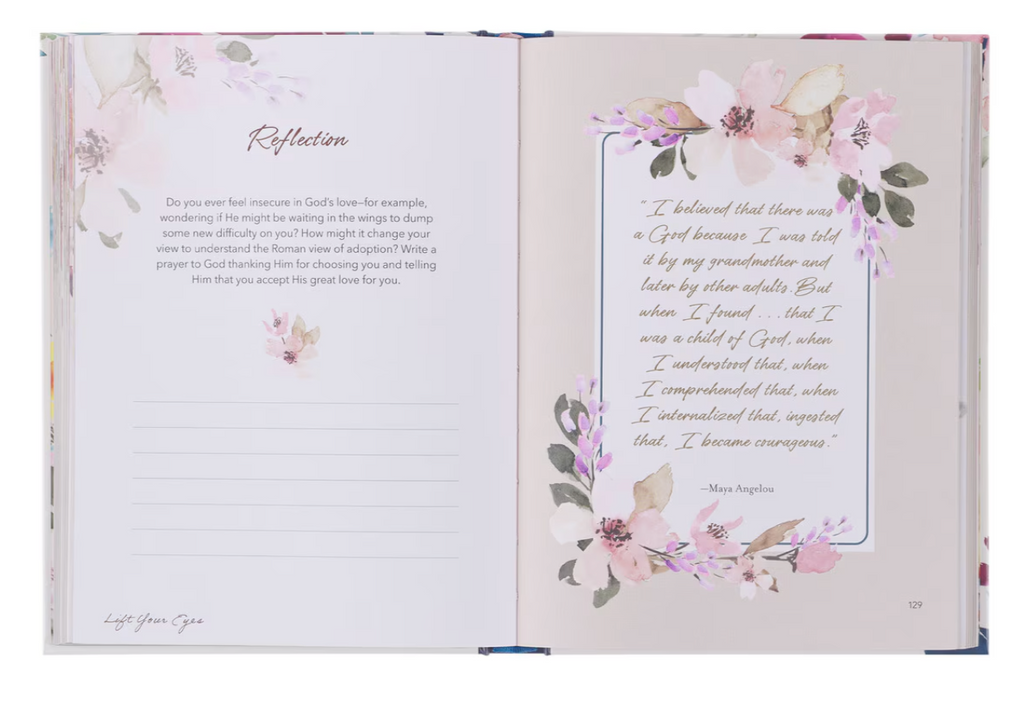 Reflection
Do you ever feel insecure in God's love–for example,
wondering if He might be waiting in the wings to dump
some new difficulty on you? How might it change your
view to understand the Roman view of adoption? Write a
prayer to God thanking Him for choosing you and telling
Him that you accept His great love for you.
Lift Your Eyes
"I believed that there was
a God because I was told
it by my grandmother and
later by other adults. But
when I found . . . that I
was a child of God, when
I understood that, when
I comprehended that, when
I internalized that, ingested
that, I became courageous."
—Maya Angelou
129